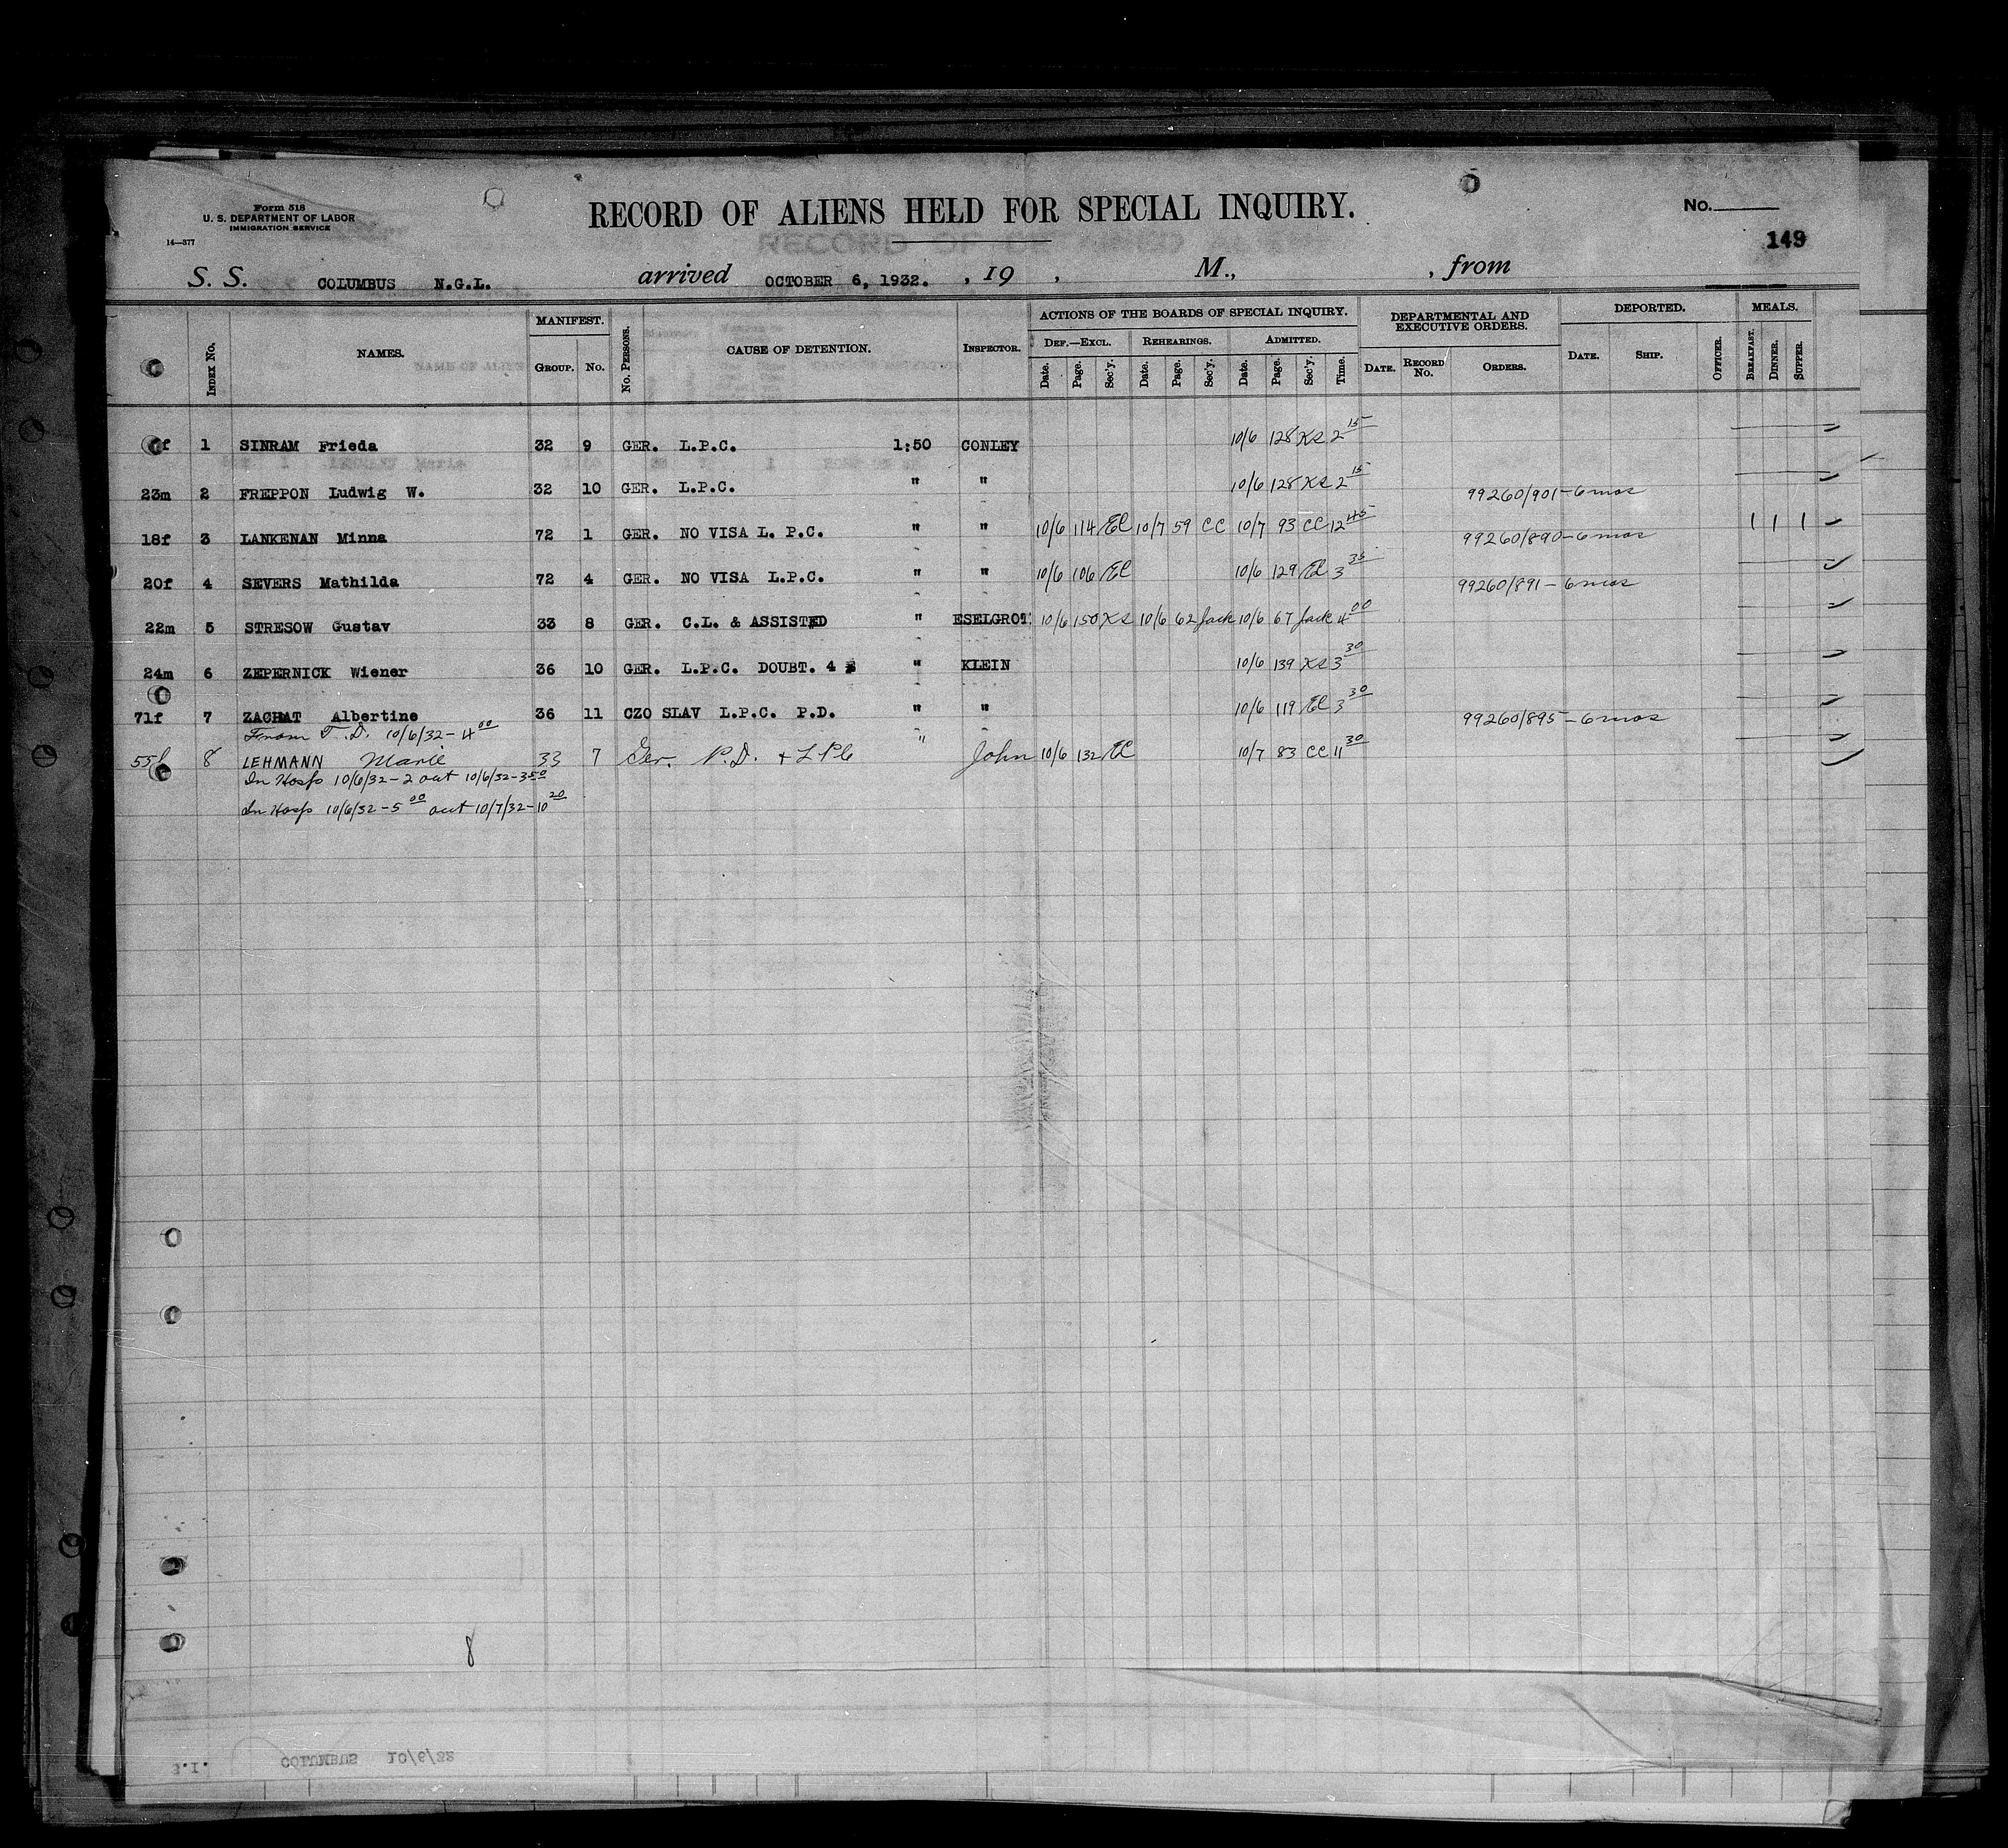 Form 518
U. S. DEPARTMENT OF LABOR
IMMIGRATION SERVICE
14—377
RECORD OF ALIENS HELD FOR SPECIAL INQUIRY.
No.
149
S. S. COLUMBUS N.G.L. arrived OCTOBER 6, 1932. , 19 , M., , from
INDEX NO. NAMES. MANIFEST. GROUP. NO. NO. PERSONS. CAUSE OF DETENTION. INSPECTOR. ACTIONS OF THE BOARDS OF SPECIAL INQUIRY. DEPARTMENTAL AND EXECUTIVE ORDERS. DEPORTED. MEALS.
DEF.—EXCL. REHEARINGS. ADMITTED.
Date. Page. Sec'y. Date. Page. Sec'y. Date. Page. Sec'y. Time. DATE. RECORD NO. ORDERS. DATE. SHIP. OFFICER. BREAKFAST. DINNER. SUPPER.
f 1 SINRAM Frieda 32 9 GER. L.P.C. 1:50 CONLEY 10/6 128 KS 2 15
23m 2 FREPPON Ludwig W. 32 10 GER. L.P.C. " " 10/6 128 KS 2 15 99260/901-6 mos
18f 3 LANKENAN Minna 72 1 GER. NO VISA L. P.C. " " 10/6 114 El 10/7 59 CC 10/7 93 CC 12 45 99260/890-6 mos 1 1 1
20f 4 SEVERS Mathilda 72 4 GER. NO VISA L.P.C. " " 10/6 106 El 10/6 129 El 3 35 99260/891- 6 mos
22m 5 STRESOW Gustav 33 8 GER. C.L. & ASSISTED " ESELGROT 10/6 150 KS 10/6 62 Jack 10/6 67 Jack 4 00
24m 6 ZEPERNICK Wiener 36 10 GER. L.P.C. DOUBT. 4 " KLEIN 10/6 139 KS 3 30
71f 7 ZACHAT Albertine 36 11 CZO SLAV L.P.C. P.D. " " 10/6 119 El 3 30 99260/895-6 mos
From T.D. 10/6/32-4 00
55f 8 LEHMANN Marie 33 7 Ger. P.D. + LPC " John 10/6 132 El 10/7 83 CC 11 30
In Hosp 10/6/32-2 out 10/6/32-3 50
In Hosp 10/6/32-5 00 out 10/7/32-10 20
8
S.I. COLUMBUS 10/6/32